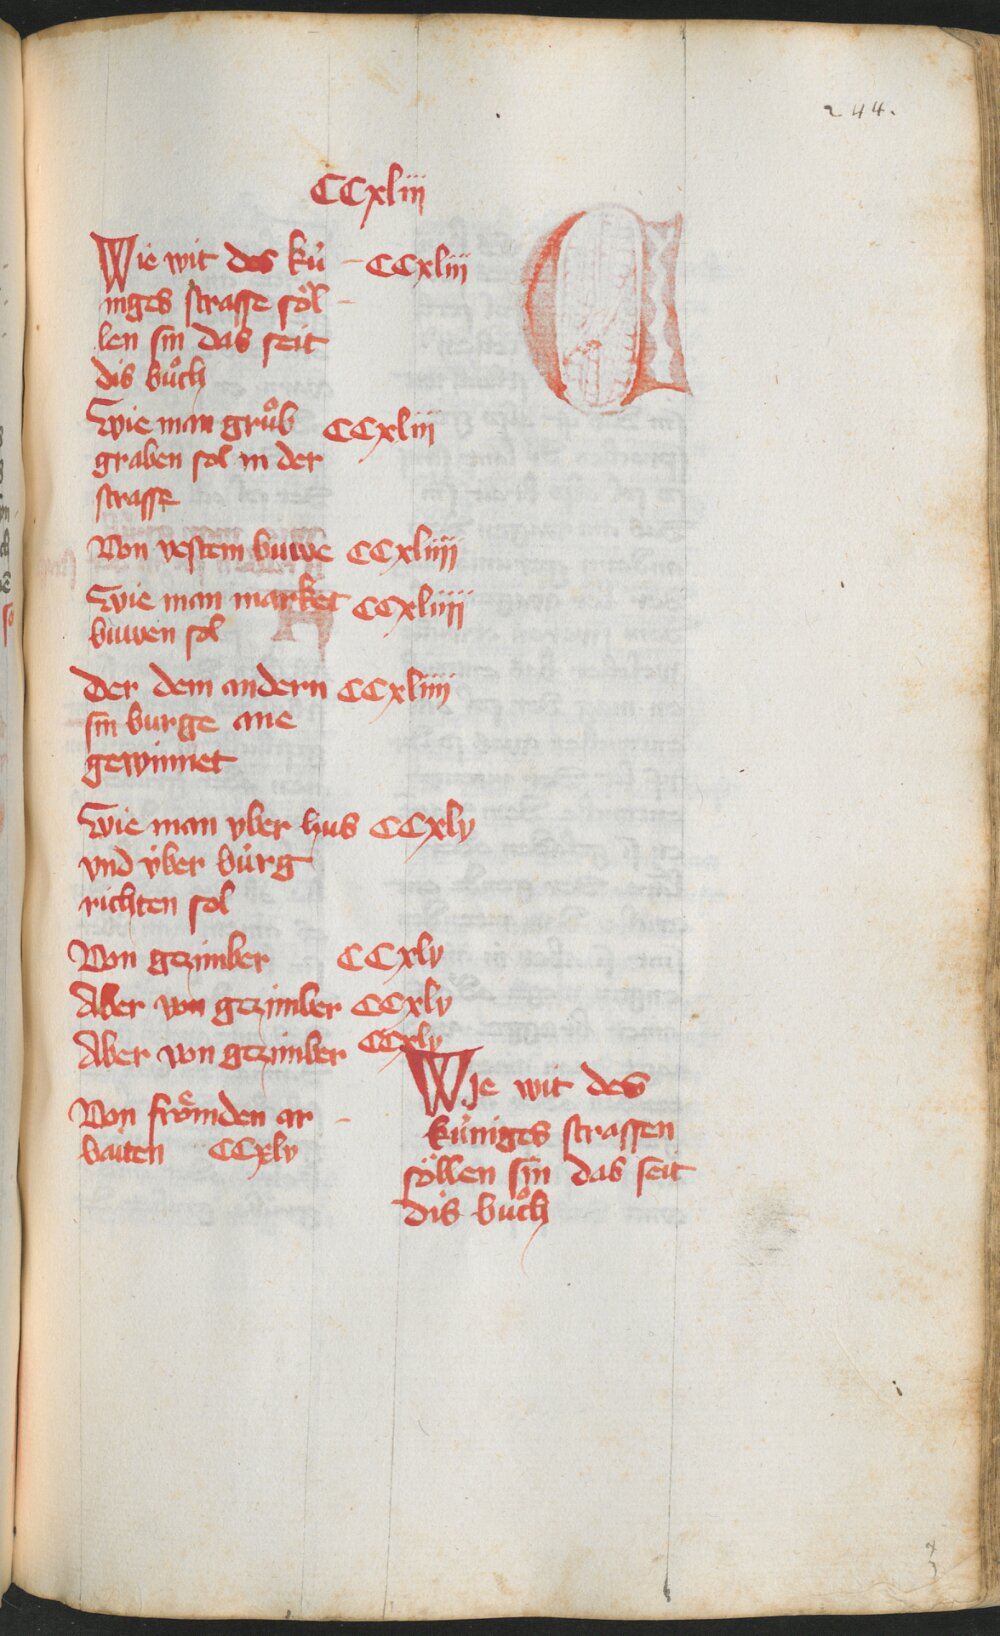 244.
CCxliij
Wie wit des kü
niges strasse söl
len sin das seit
dis buͦch
CCxliij
Wie man gruͦb
graben sol in der
strasse
CCxliij
Von vestem buwe CCxliiij
Wie man market
buwen sol
CCxliiij
Der dem andern CCxliiij
sin burge ane
gewinnet
Wie man vber hus CCxlv
vnd v̈ber bürg
richten sol
Von gezimber CCxlv
Aber von gezimber CCxlv
Aber von gezimber CCxlv
Von frömden ar
baiten CCxlv
Wie wit des
küniges strassen
söllen sin das seit
dis buͦch